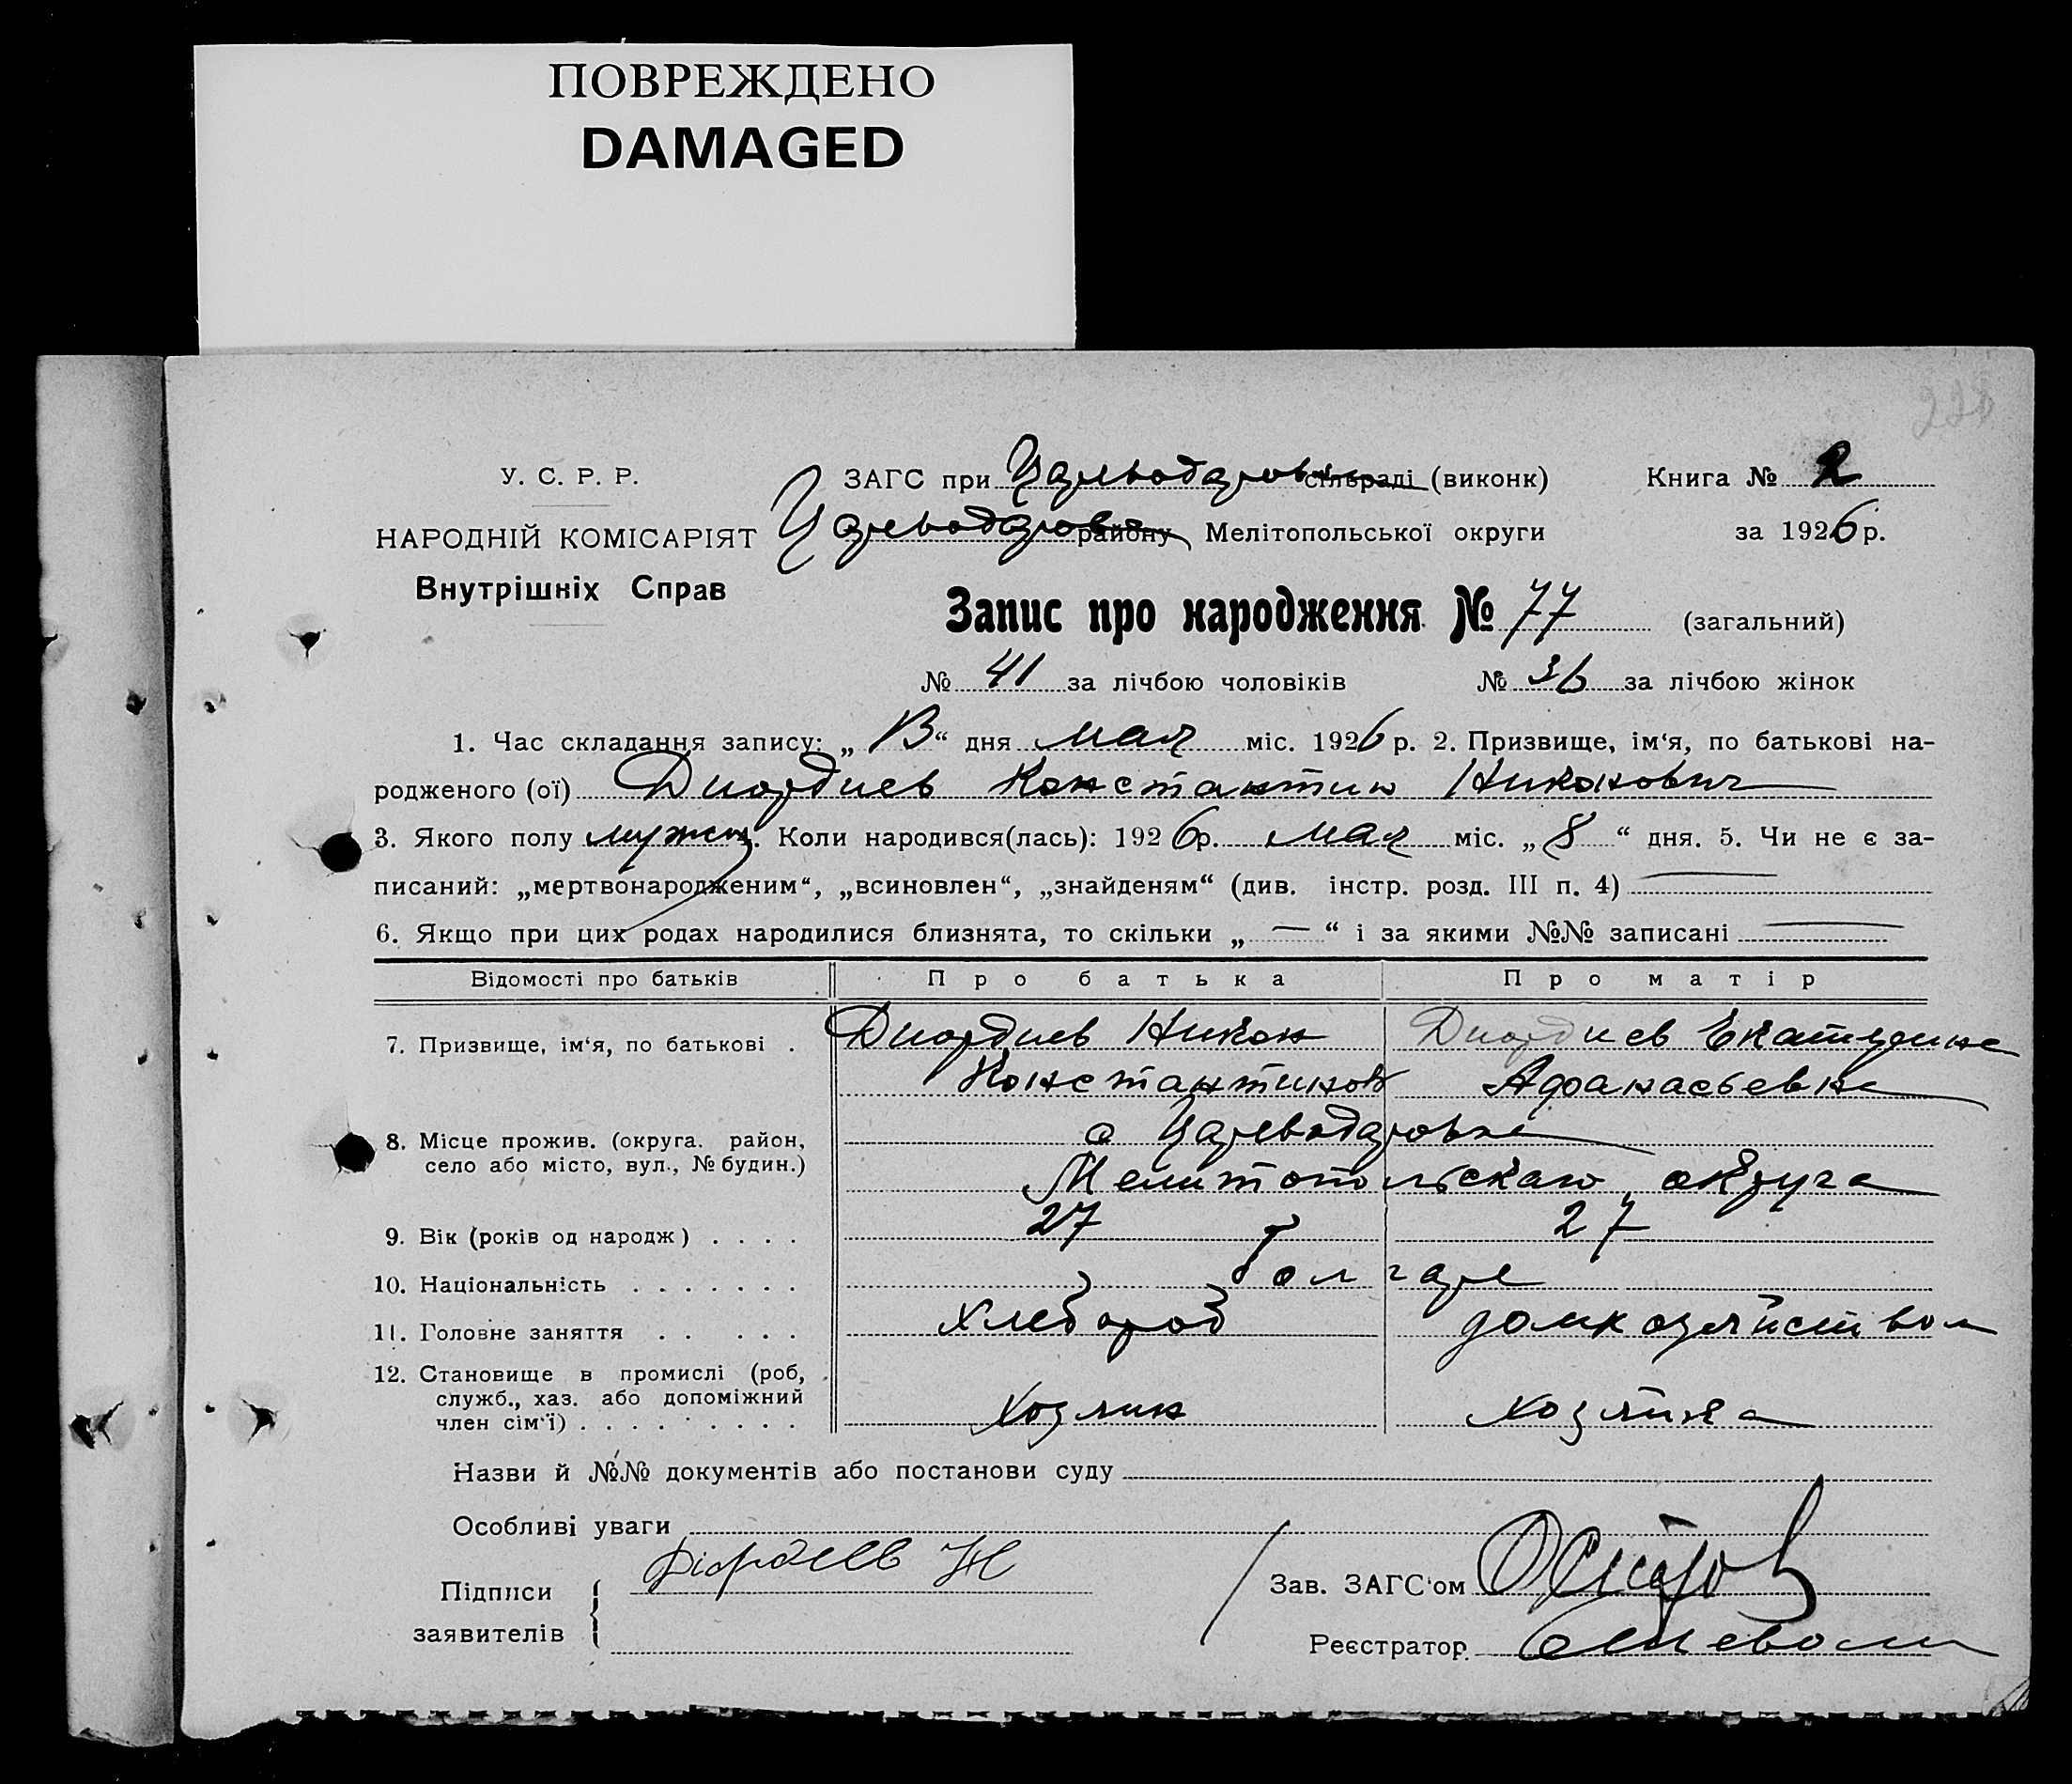 ПОВРЕЖДЕНО
DAMAGED
228
У. С. Р. Р. ЗАГС при Цареводаровск сільраді (виконк) Книга № 2
НАРОДНІЙ КОМІСАРІЯТ Цареводаровк району Мелітопольської округи за 1926 р.
Внутрішніх Справ
Запис про народження № 77 (загальний)
№ 41 за лічбою чоловіків № 36 за лічбою жінок
1. Час складання запису: „13“ дня мая міс. 1926 р. 2. Призвище, ім‘я, по батькові на-
родженого (ої) Диордиев Константин Никонович
3. Якого полу мужск. Коли народився(лась): 1926 р. мая міс. „8“ дня. 5. Чи не є за-
писаний: „мертвонародженим“, „всиновлен“, „знайденям“ (див. інстр. розд. III п. 4) —
6. Якщо при цих родах народилися близнята, то скільки „—“ і за якими №№ записані —
Відомості про батьків Про батька Про матір
7. Призвище, ім‘я, по батькові . Диордиев Никон Диордиев Екатерина
Константинов Афанасьевна
8. Місце прожив. (округа. район, с Цареводаровка
село або місто, вул., № будин.) Мелитопольскаго округа
9. Вік (років од народж) . . . . 27 27
10. Національність . . . . . . . болгаре
11. Головне заняття . . . . . Хлебороб домхозяйством
12. Становище в промислі (роб,
служб., хаз. або допоміжний
член сім‘ї) . . . . . . . . . Хозяин хозяйка
Назви й №№ документів або постанови суду
Особливі уваги
Підписи Діордиев Н
Зав. ЗАГС‘ом
заявителів
Реєстратор